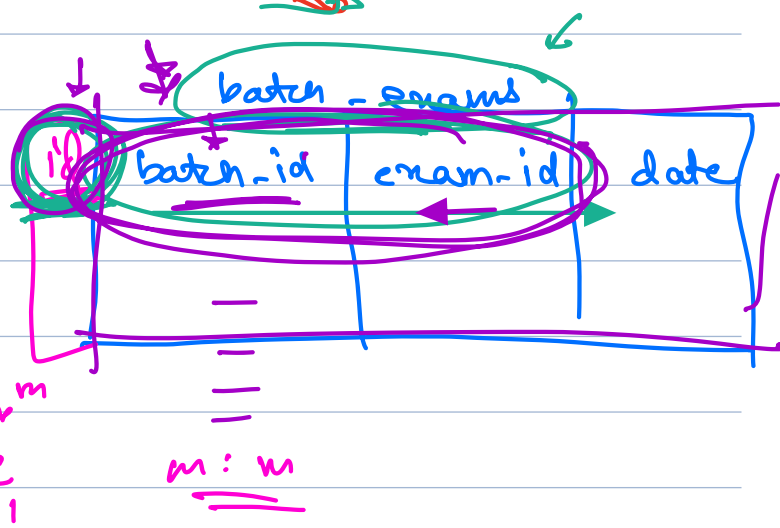 batch_exams
id batch_id exam_id date
m
m : m
1